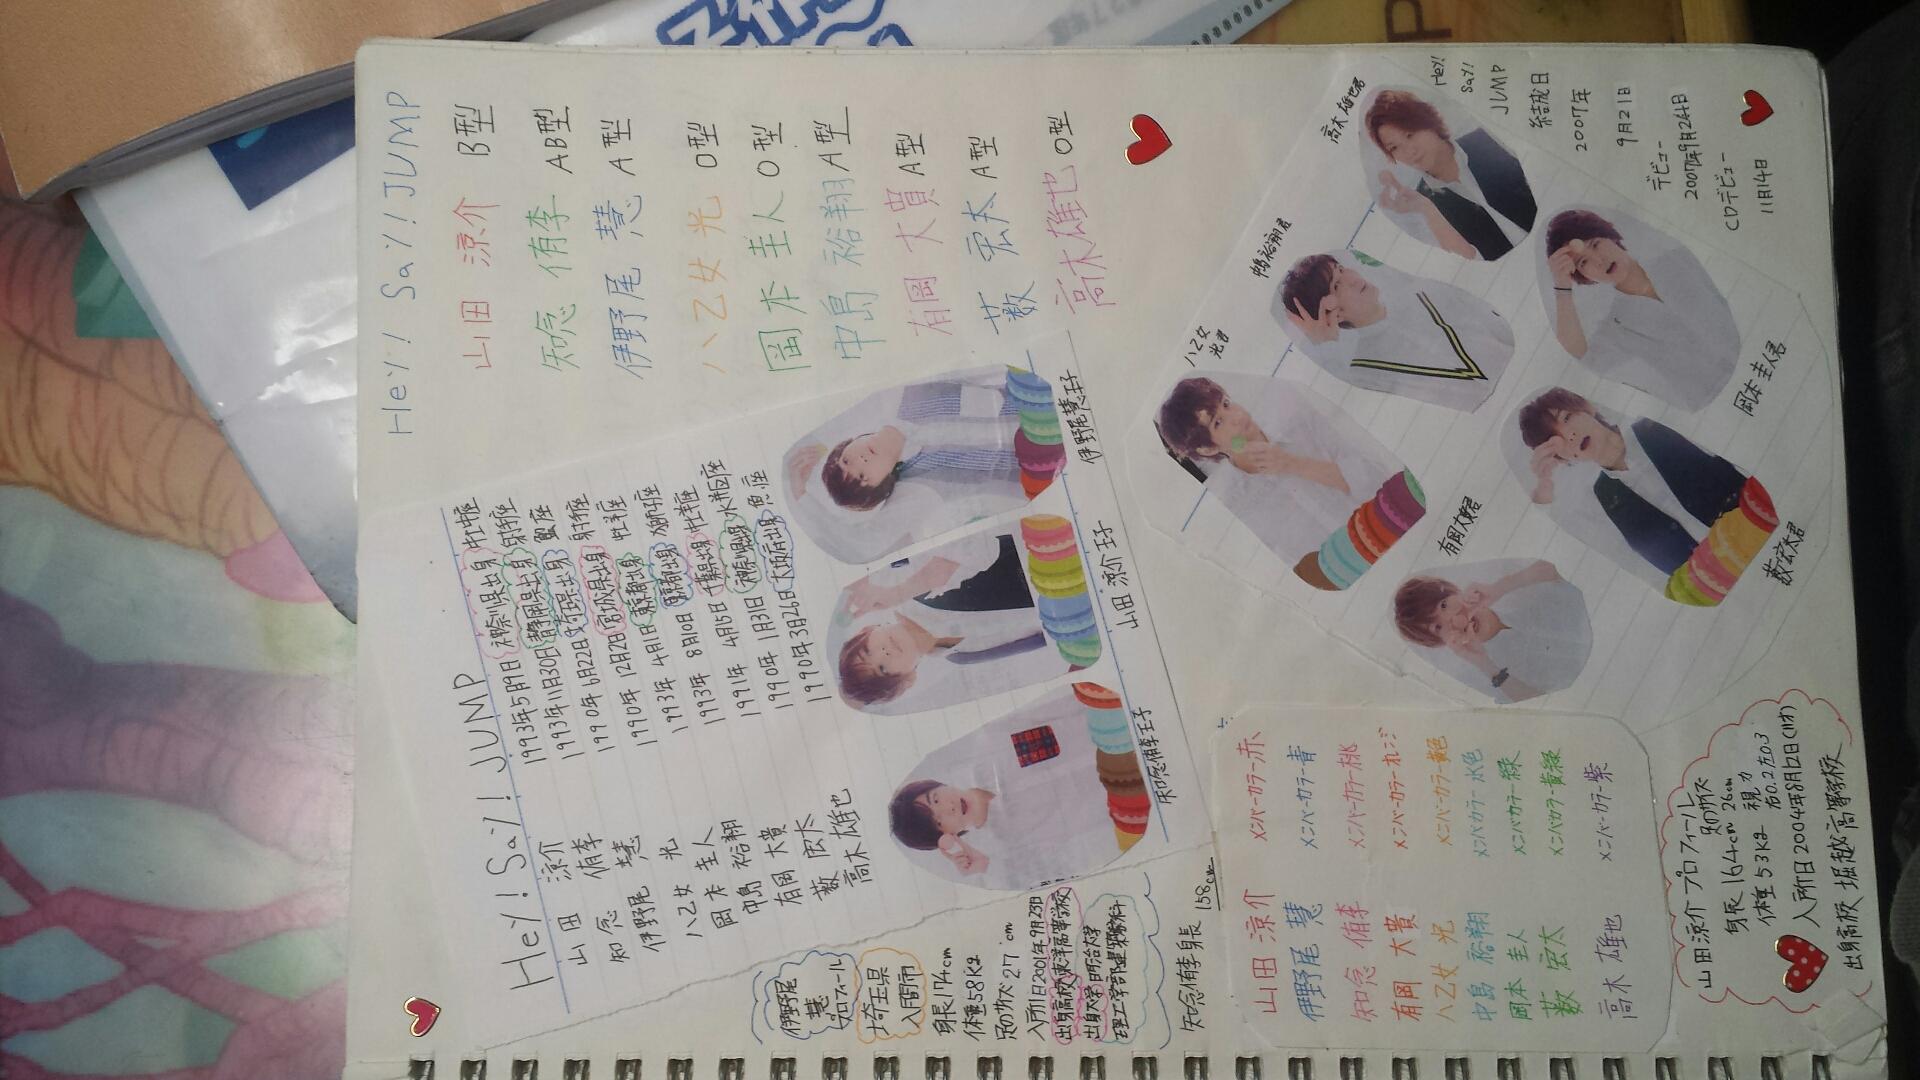 Hey! Say! JUMP
山田 涼介 B型
知念 侑李 AB型
伊野尾 慧 A型
八乙女 光 O型
岡本 圭人 O型
中島 裕翔 A型
有岡 大貴 A型
薮 宏太 A型
高木 雄也 O型
Hey! Say! JUMP
山田 涼介 1993年5月9日 神奈川県出身 牡牛座
知念 侑李 1993年11月30日 静岡県出身 射手座
伊野尾 慧 1990年6月22日 埼玉県出身 蟹座
八乙女 光 1990年 12月2日 宮城県出身 射手座
岡本 圭人 1993年 4月1日 東京都出身 牡羊座
中島 裕翔 1993年 8月10日 東京都出身 獅子座
有岡 大貴 1991年 4月15日 千葉県出身 牡羊座
薮 宏太 1990年 1月31日 神奈川県出身 水瓶座
高木 雄也 1990年3月26日 大阪府出身 魚座
知念侑李王子
山田 涼介 王子
伊野尾慧王子
伊野尾
慧
プロフィール
埼玉県
入間市
身長174cm
体重58kg
足のサイズ27cm
入所日2001年9月23日
出身高校 東洋高等学校
出身大学 明治大学
理工学部建築学科
知念侑李身長
158cm
高木雄也君
中島裕翔君
八乙女
光君
岡本圭人君
有岡大貴君
薮宏太君
Hey!
Say!
JUMP
結成日
2007年
9月21日
デビュー
2007年9月24日
CDデビュー
11月14日
山田 涼介 メンバーカラー赤
伊野尾 慧 メンバーカラー青
知念 侑李 メンバーカラー桃
有岡 大貴 メンバーカラーオレンジ
八乙女 光 メンバーカラー黄色
中島 裕翔 メンバーカラー水色
岡本 圭人 メンバーカラー緑
薮 宏太 メンバーカラー黄緑
高木 雄也 メンバーカラー紫
山田涼介プロフィール
身長164cm 足のサイズ 26cm
体重53kg 視力 右0.2左0.3
入所日2004年8月12日(11才)
出身高校 堀越高等学校